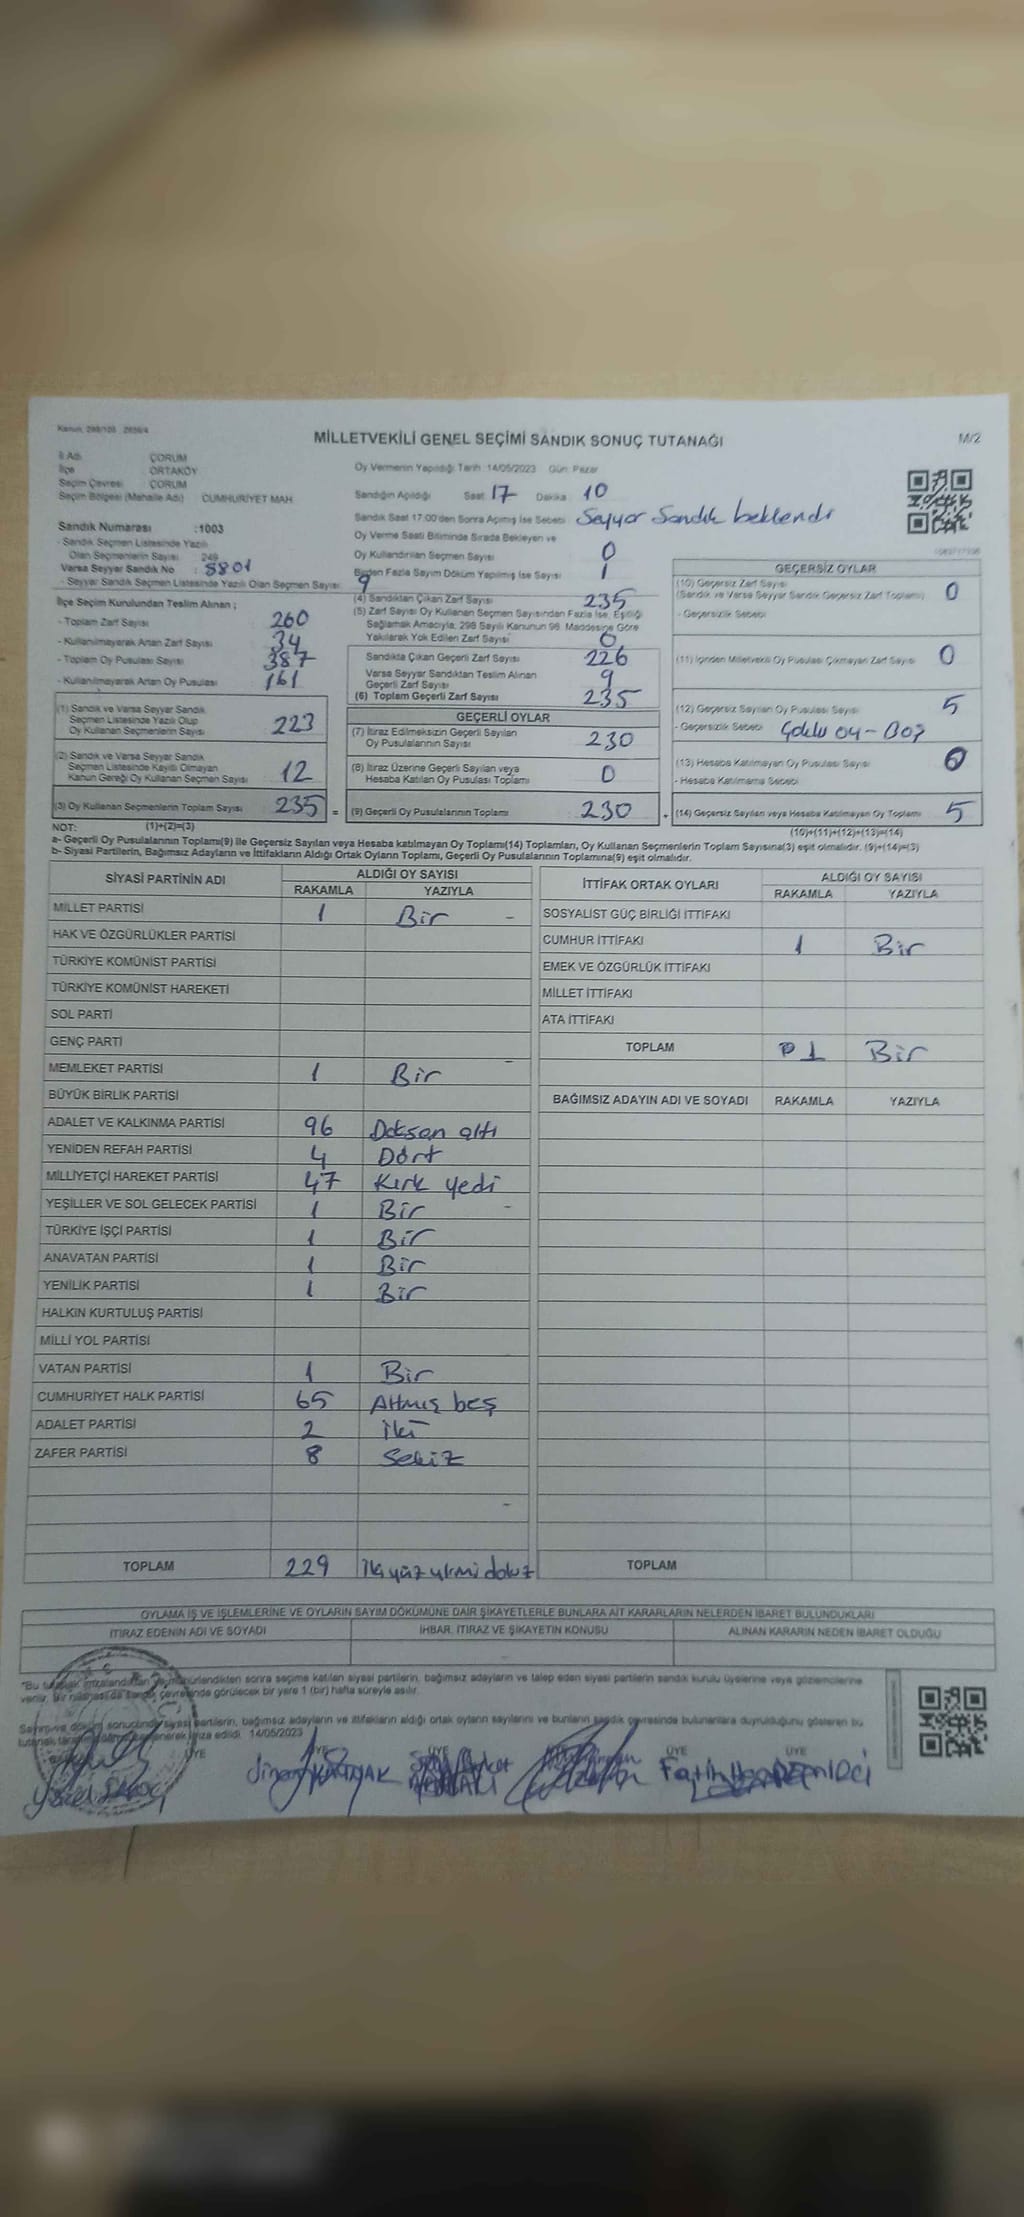 Kanun: 298/105 , 2839/4
MİLLETVEKİLİ GENEL SEÇİMİ SANDIK SONUÇ TUTANAĞI
M/2
İl Adı ÇORUM
İlçe ORTAKÖY
Seçim Çevresi ÇORUM
Seçim Bölgesi (Mahalle Adı) CUMHURİYET MAH
Sandık Numarası :1003
- Sandık Seçmen Listesinde Yazılı
Olan Seçmenlerin Sayısı 249
Varsa Seyyar Sandık No : 8801
- Seyyar Sandık Seçmen Listesinde Yazılı Olan Seçmen Sayısı: 9
İlçe Seçim Kurulundan Teslim Alınan ;
- Toplam Zarf Sayısı 260
- Kullanılmayarak Artan Zarf Sayısı 34
- Toplam Oy Pusulası Sayısı 387
- Kullanılmayarak Artan Oy Pusulası 161
(1) Sandık ve Varsa Seyyar Sandık
Seçmen Listesinde Yazılı Olup
Oy Kullanan Seçmenlerin Sayısı 223
(2) Sandık ve Varsa Seyyar Sandık
Seçmen Listesinde Kayıtlı Olmayan
Kanun Gereği Oy Kullanan Seçmen Sayısı 12
(3) Oy Kullanan Seçmenlerin Toplam Sayısı 235 =
Oy Vermenin Yapıldığı Tarih :14/05/2023 Gün: Pazar
Sandığın Açıldığı Saat: 17 Dakika : 10
Sandık Saat 17:00'den Sonra Açılmış İse Sebebi : Seyyar Sandık beklendi
Oy Verme Saati Bitiminde Sırada Bekleyen ve
Oy Kullandırılan Seçmen Sayısı 0
Birden Fazla Sayım Döküm Yapılmış İse Sayısı 1
(4) Sandıktan Çıkan Zarf Sayısı 235
(5) Zarf Sayısı Oy Kullanan Seçmen Sayısından Fazla İse, Eşitliği
Sağlamak Amacıyla, 298 Sayılı Kanunun 98. Maddesine Göre
Yakılarak Yok Edilen Zarf Sayısı 0
Sandıkta Çıkan Geçerli Zarf Sayısı 226
Varsa Seyyar Sandıktan Teslim Alınan
Geçerli Zarf Sayısı 9
(6) Toplam Geçerli Zarf Sayısı 235
GEÇERLİ OYLAR
(7) İtiraz Edilmeksizin Geçerli Sayılan
Oy Pusulalarının Sayısı 230
(8) İtiraz Üzerine Geçerli Sayılan veya
Hesaba Katılan Oy Pusulası Toplamı 0
(9) Geçerli Oy Pusulalarının Toplamı 230
GEÇERSİZ OYLAR
(10) Geçersiz Zarf Sayısı
(Sandık ve Varsa Seyyar Sandık Geçersiz Zarf Toplamı) 0
- Geçersizlik Sebebi
(11) İçinden Milletvekili Oy Pusulası Çıkmayan Zarf Sayısı 0
(12) Geçersiz Sayılan Oy Pusulası Sayısı 5
- Geçersizlik Sebebi Çoklu oy - Boş
(13) Hesaba Katılmayan Oy Pusulası Sayısı 0
- Hesaba Katılmama Sebebi
(14) Geçersiz Sayılan veya Hesaba Katılmayan Oy Toplamı 5
NOT: (1)+(2)=(3)
(10)+(11)+(12)+(13)=(14)
a- Geçerli Oy Pusulalarının Toplamı(9) ile Geçersiz Sayılan veya Hesaba katılmayan Oy Toplamı(14) Toplamları, Oy Kullanan Seçmenlerin Toplam Sayısına(3) eşit olmalıdır. (9)+(14)=(3)
b- Siyasi Partilerin, Bağımsız Adayların ve İttifakların Aldığı Ortak Oyların Toplamı, Geçerli Oy Pusulalarının Toplamına(9) eşit olmalıdır.
SİYASİ PARTİNİN ADI ALDIĞI OY SAYISI
RAKAMLA YAZIYLA
MİLLET PARTİSİ 1 Bir -
HAK VE ÖZGÜRLÜKLER PARTİSİ
TÜRKİYE KOMÜNİST PARTİSİ
TÜRKİYE KOMÜNİST HAREKETİ
SOL PARTİ
GENÇ PARTİ
MEMLEKET PARTİSİ 1 Bir
BÜYÜK BİRLİK PARTİSİ
ADALET VE KALKINMA PARTİSİ 96 Doksan altı
YENİDEN REFAH PARTİSİ 4 Dört
MİLLİYETÇİ HAREKET PARTİSİ 47 Kırk yedi
YEŞİLLER VE SOL GELECEK PARTİSİ 1 Bir
TÜRKİYE İŞÇİ PARTİSİ 1 Bir
ANAVATAN PARTİSİ 1 Bir
YENİLİK PARTİSİ 1 Bir
HALKIN KURTULUŞ PARTİSİ
MİLLİ YOL PARTİSİ
VATAN PARTİSİ 1 Bir
CUMHURİYET HALK PARTİSİ 65 Altmış beş
ADALET PARTİSİ 2 İki
ZAFER PARTİSİ 8 Sekiz
TOPLAM 229 İkiyüz yirmi dokuz
İTTİFAK ORTAK OYLARI ALDIĞI OY SAYISI
RAKAMLA YAZIYLA
SOSYALİST GÜÇ BİRLİĞİ İTTİFAKI
CUMHUR İTTİFAKI 1 Bir
EMEK VE ÖZGÜRLÜK İTTİFAKI
MİLLET İTTİFAKI
ATA İTTİFAKI
TOPLAM 1 Bir
BAĞIMSIZ ADAYIN ADI VE SOYADI RAKAMLA YAZIYLA
TOPLAM
OYLAMA İŞ VE İŞLEMLERİNE VE OYLARIN SAYIM DÖKÜMÜNE DAİR ŞİKAYETLERLE BUNLARA AİT KARARLARIN NELERDEN İBARET BULUNDUKLARI
İTİRAZ EDENİN ADI VE SOYADI İHBAR, İTİRAZ VE ŞİKAYETİN KONUSU ALINAN KARARIN NEDEN İBARET OLDUĞU
"Bu tutanak imzalandıktan ve mühürlendikten sonra seçime katılan siyasi partilerin, bağımsız adayların ve talep eden siyasi partilerin sandık kurulu üyelerine veya gözlemcilerine
verilir. Bir nüshası da sandık çevresinde görülecek bir yere 1 (bir) hafta süreyle asılır.
Sayım ve döküm sonucunda siyasi partilerin, bağımsız adayların ve ittifakların aldığı ortak oyların sayılarını ve bunların sandık çevresinde bulunanlara duyrulduğunu gösteren bu
tutanak imza edildi. 14/05/2023
ÜYE ÜYE ÜYE ÜYE
Fatih